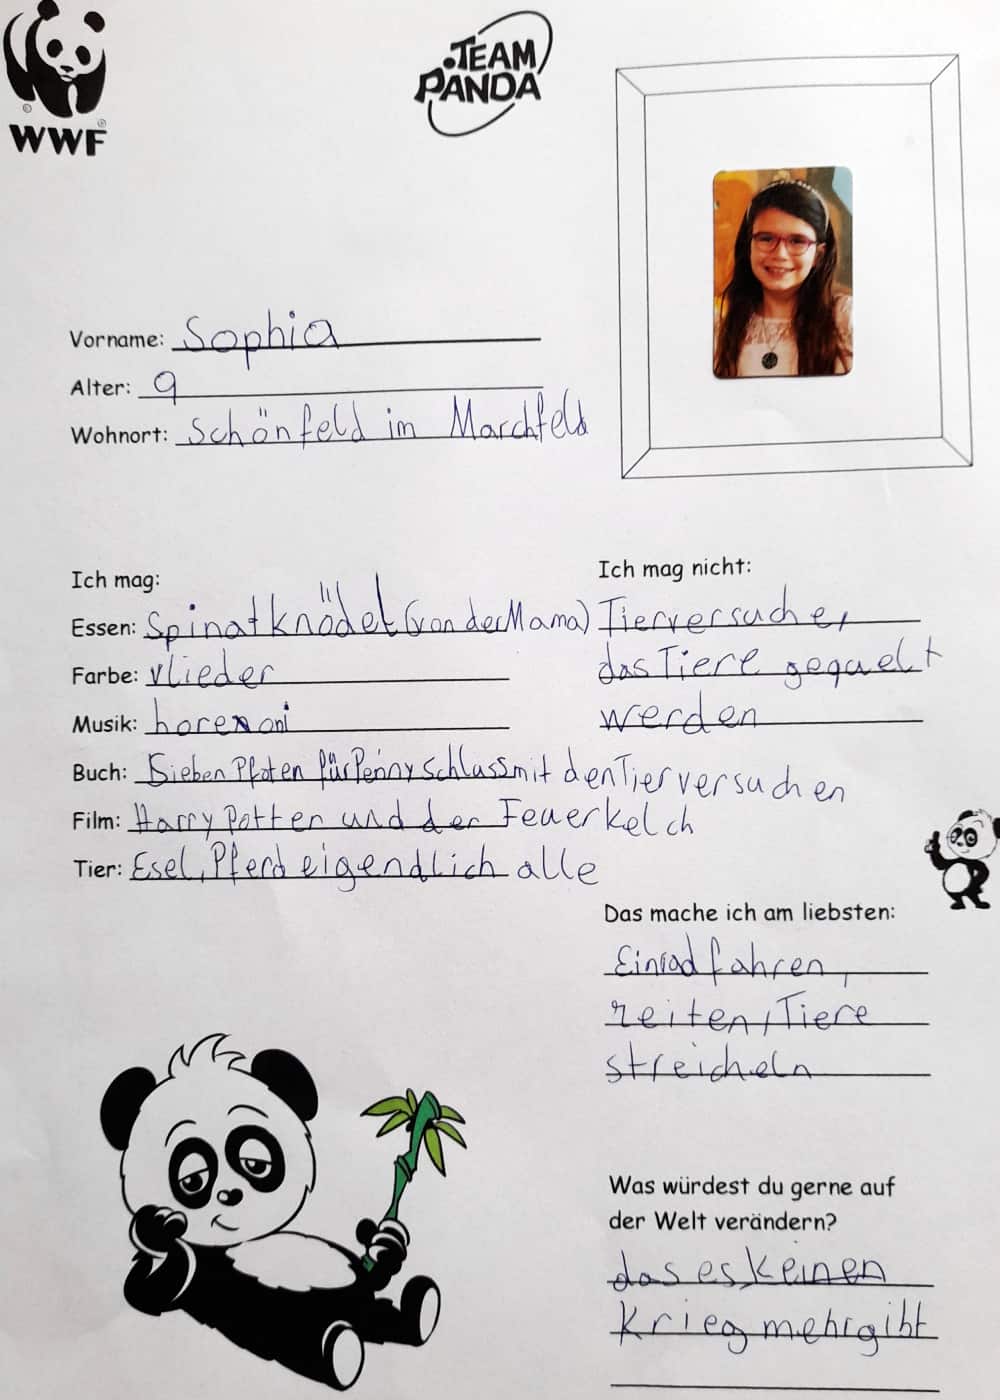 WWF
TEAM
PANDA
Vorname: Sophia
Alter: 9
Wohnort: Schönfeld im Marchfeld
Ich mag:
Essen: Spinatknödel (von der Mama)
Farbe: vlieder
Musik:
Buch: Sieben Pfoten für Penny Schlass mit den Tierversuchen
Film: Harry Potter und der Feuerkelch
Tier: Esel, Pferd eigendlich alle
Ich mag nicht:
Tierversuche,
das Tiere gequelt
werden
Das mache ich am liebsten:
Einrad fahren,
reiten, Tiere
streicheln
Was würdest du gerne auf
der Welt verändern?
das es keinen
Krieg mehr gibt